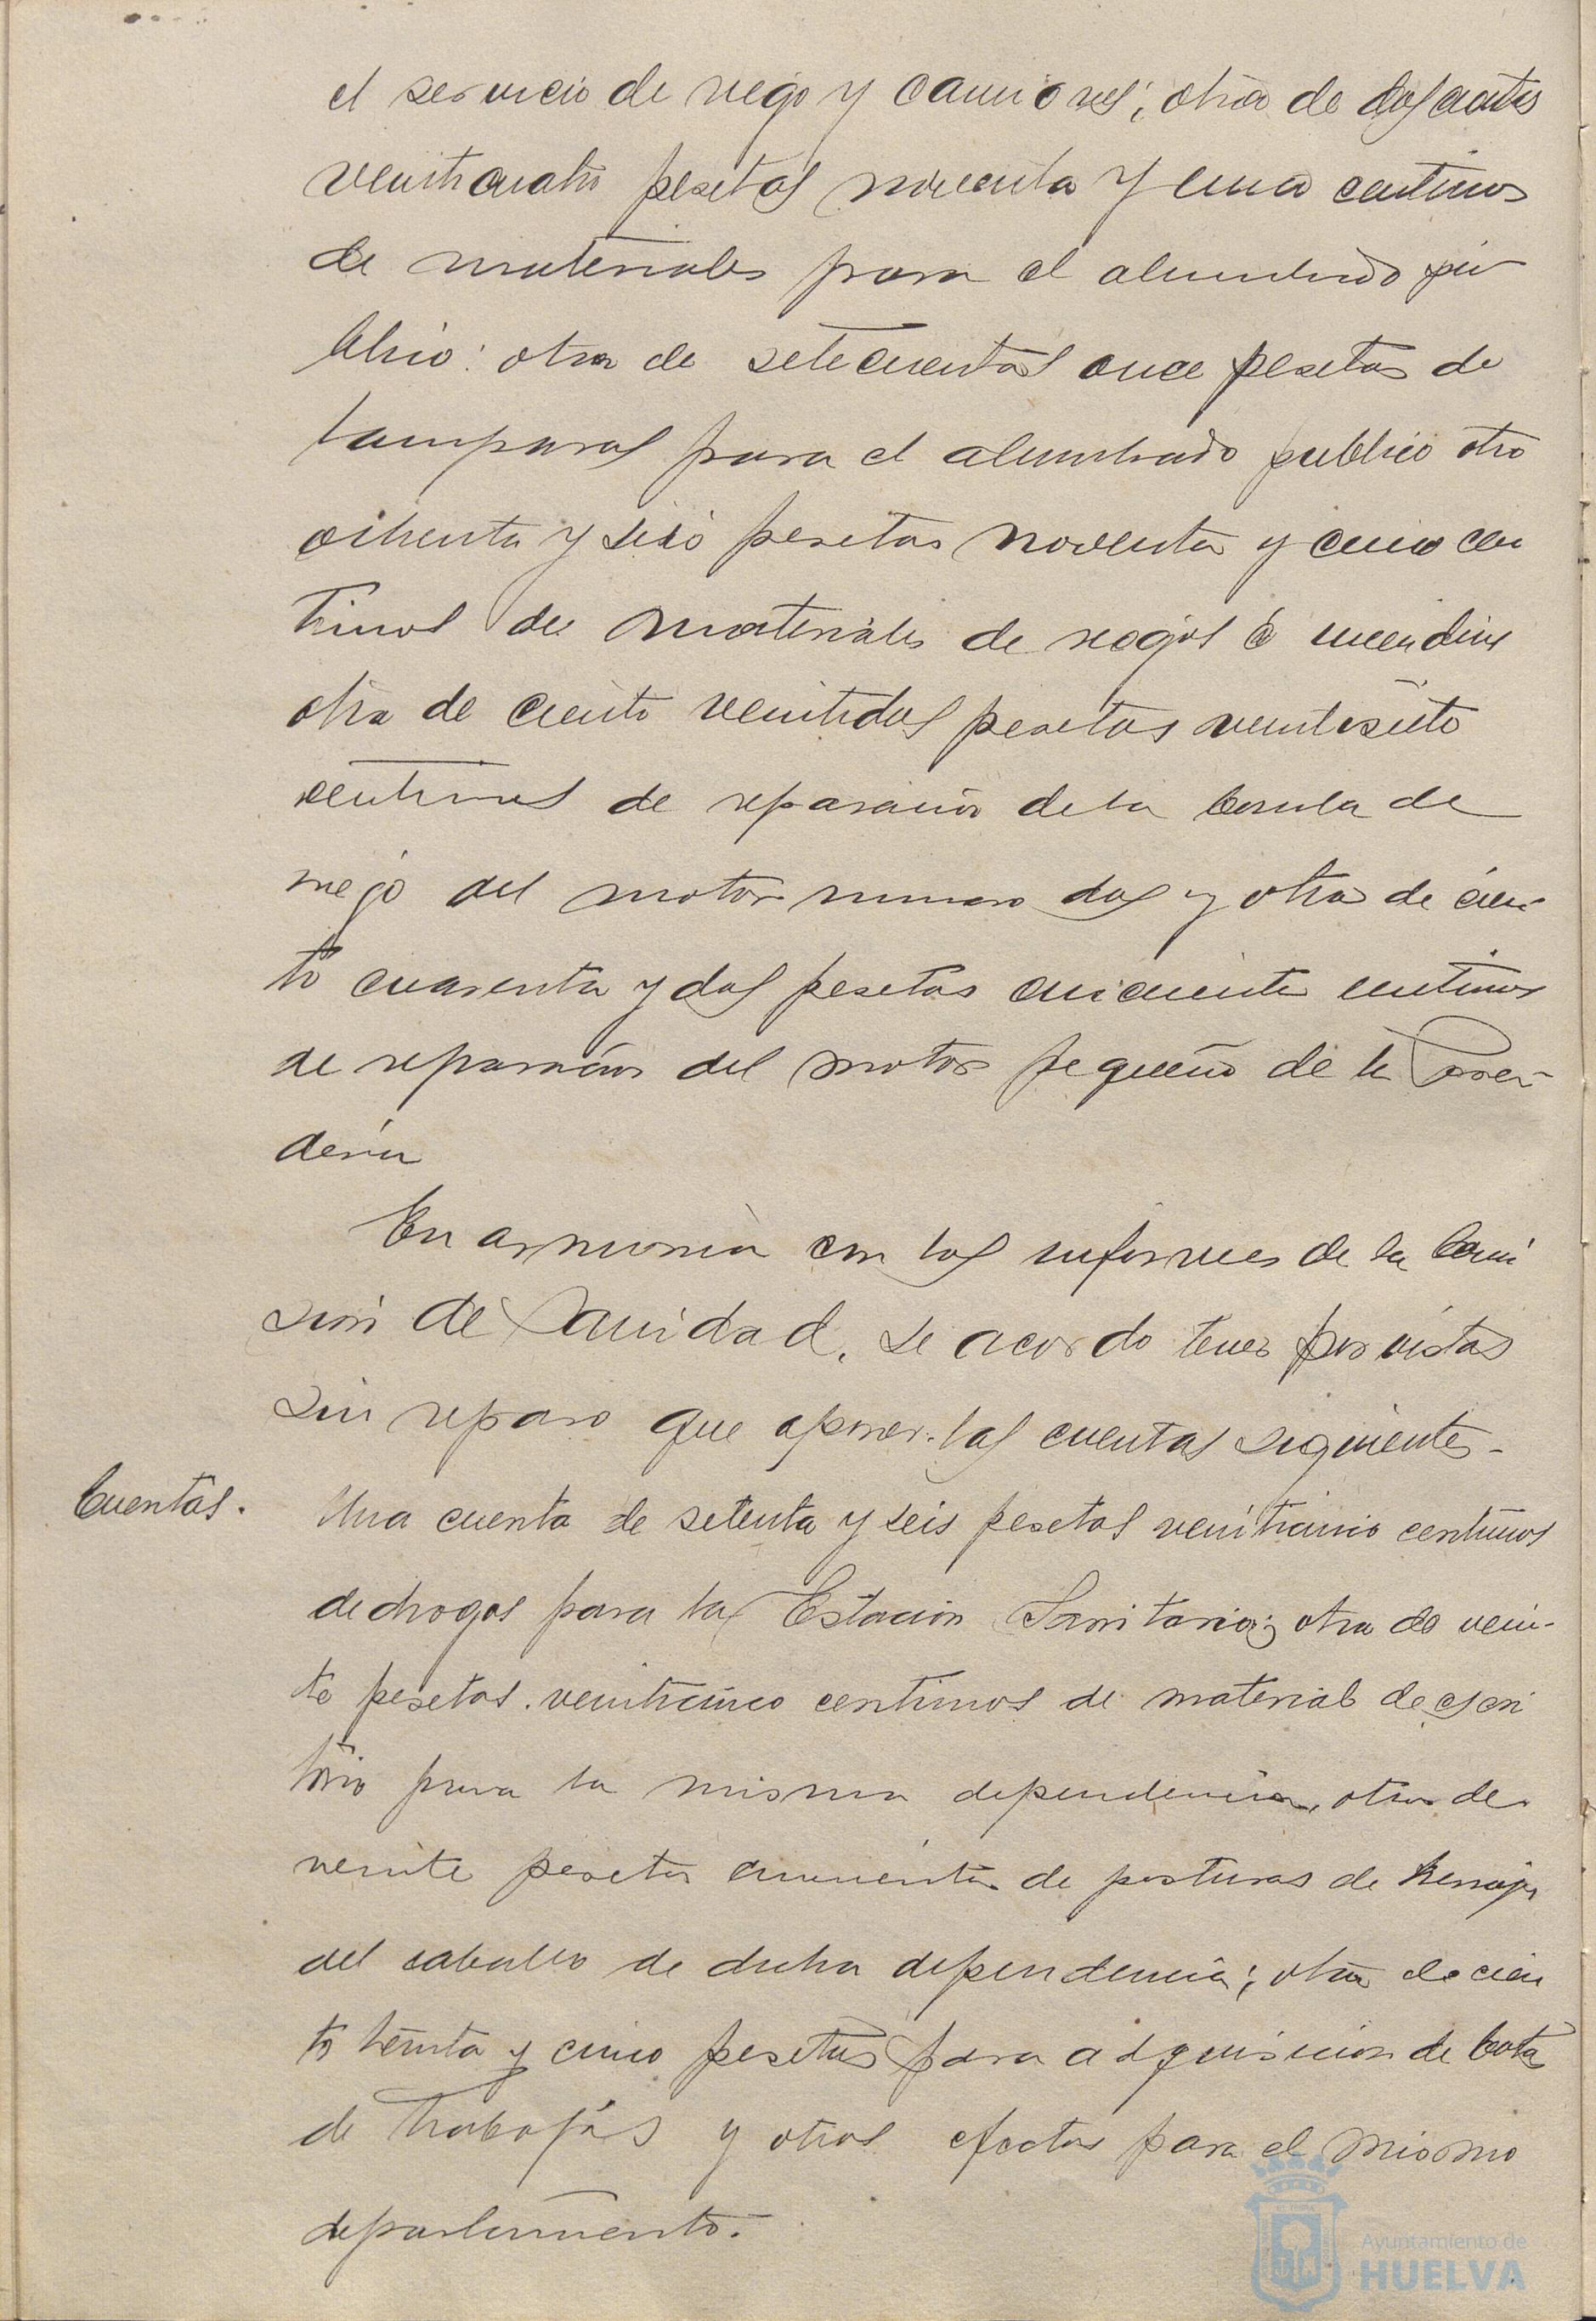 el servicio de riego y camiones; otra de doscientas
veinticuatro pesetas noventa y cinco centimos
de materiales para el alumbrado pu
blico: otra de setecientas once pesetas de
lamparas para el alumbrado publico otra
ochenta y seis pesetas noventa y cinco cen
timos de materiales de riegos é incendios
otra de ciento veintidos pesetas veintisiete
centimos de reparación de la bomba de
riego del motor numero dos y otra de cien-
to cuarenta y dos pesetas cincuenta centimos
de reparación del motor pequeño de la
deria
En armonia con los informes de la Comi
sion de Sanidad, se acordo tener por vistas
sin reparo que oponer las cuentas siguientes-
Cuentas.
Una cuenta de setenta y seis pesetas veinticinco centimos
de drogas para la Estación Sanitaria; otra de vein-
te pesetas veinticinco centimos de material de escri
torio para la misma dependencia, otra de
veinte pesetas cincuenta de posturas de herrajes
del caballo de dicha dependencia; otra de cien
to treinta y cinco pesetas para adquisicion de botas
de trabajos y otros efectos para el mismo
departamento.
Ayuntamiento de
HUELVA